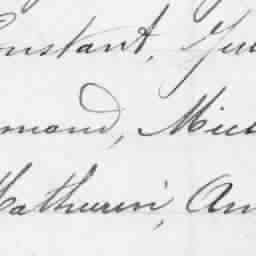 Constant, Jul
mond, Mich
Mathurin, An